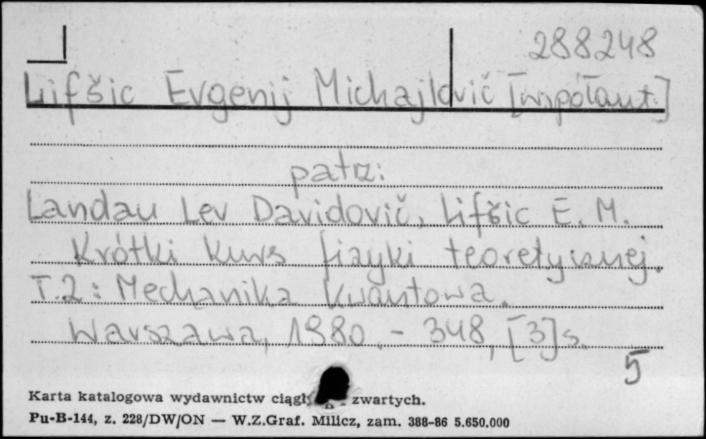 288248
Lifšic Evgenij Michajlovič [współaut.]
patrz:
Landau Lev Davidovič, Lifšic E. M.
Krótki kurs fizyki teoretycznej.
T.2: Mechanika kwantowa.
Warszawa, 1980. - 348, [3] s.
5
Karta katalogowa wydawnictw zwartych.
Pu-B-144, z. 228/DW/ON — W.Z.Graf. Milicz, zam. 388-86 5.650.000